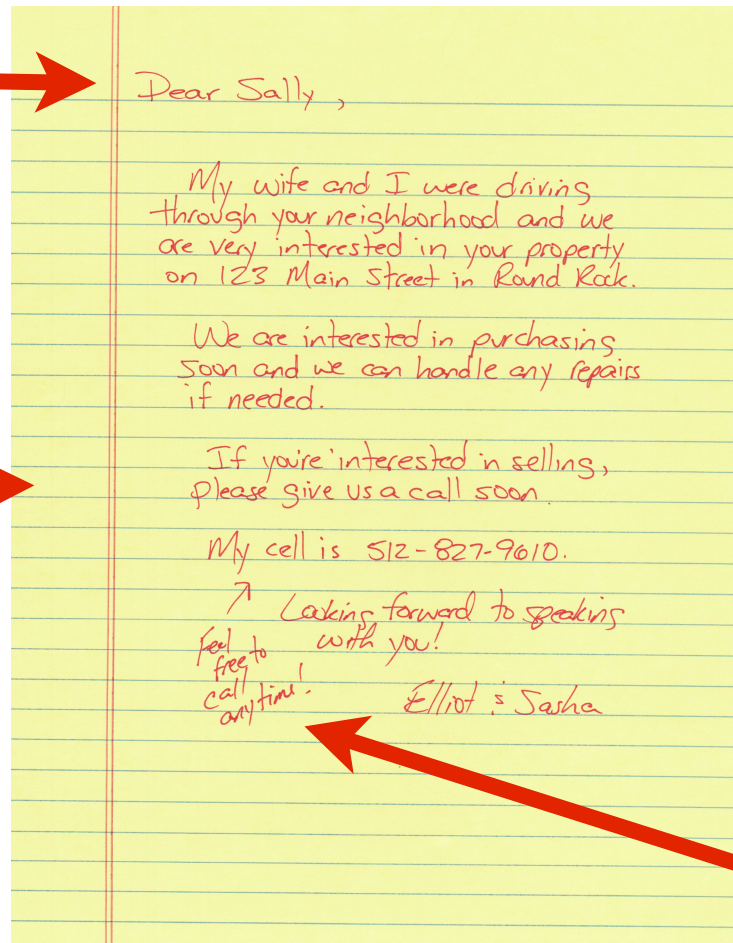 Dear Sally,
My wife and I were driving
through your neighborhood and we
are very interested in your property
on 123 Main Street in Round Rock.
We are interested in purchasing
soon and we can handle any repairs
if needed.
If you're interested in selling,
please give us a call soon.
My cell is 512-827-9610.
Looking forward to speaking
with you!
Feel
free to
call
anytime!
Elliot & Sasha